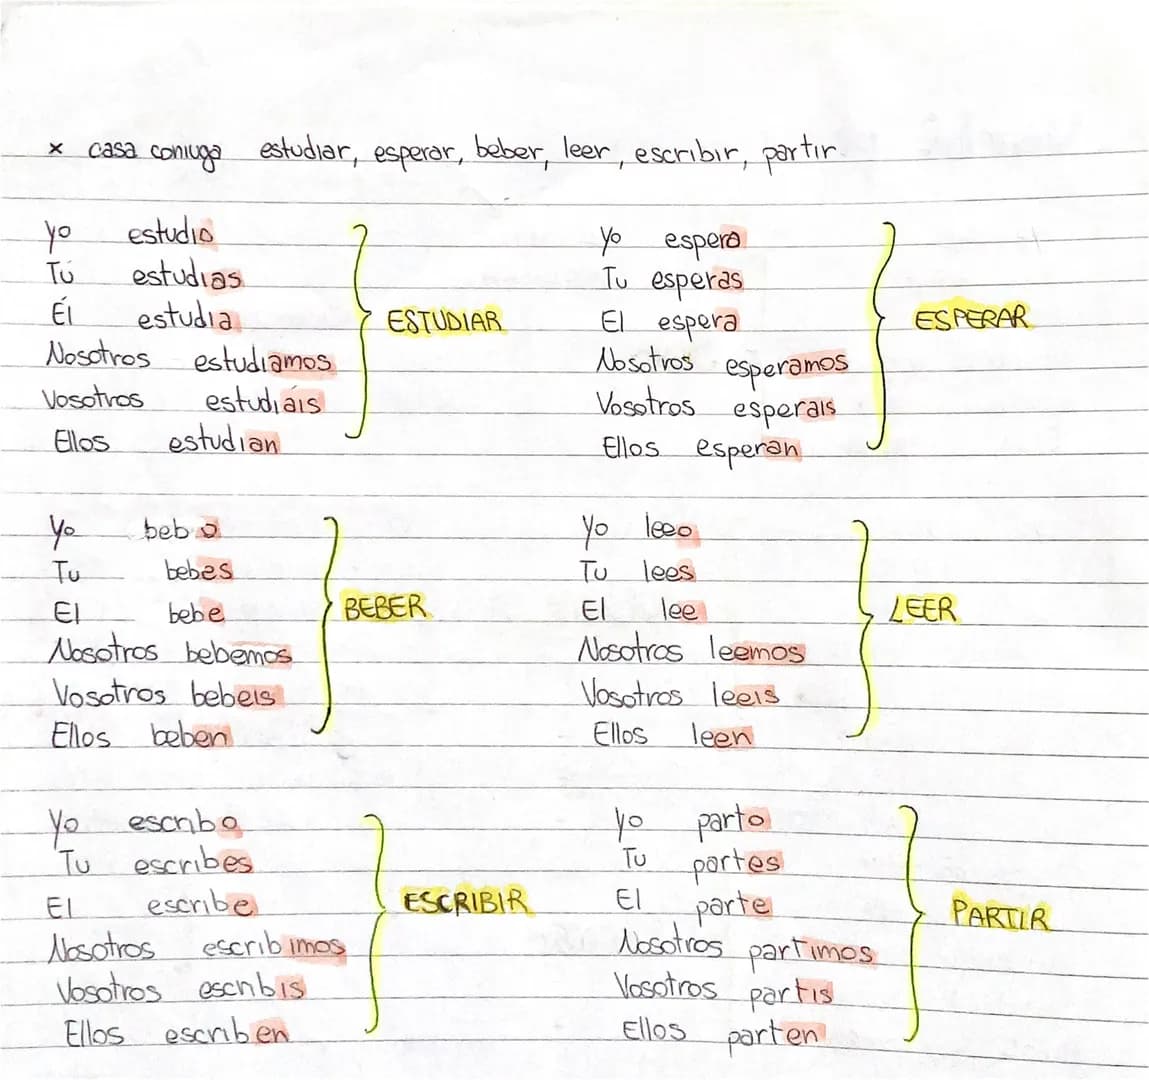 × casa coniuga estudiar, esperar, beber, leer, escribir, partir
Yo estudio
Tú estudias
Él estudia
Nosotros estudiamos
Vosotros estudiáis
Ellos estudian
ESTUDIAR
Yo espero
Tu esperas
El espera
Nosotros esperamos
Vosotros esperais
Ellos esperan
ESPERAR
Yo bebo
Tu bebes
El bebe
Nosotros bebemos
Vosotros bebeis
Ellos beben
BEBER
Yo leeo
Tu lees
El lee
Nosotros leemos
Vosotros leeis
Ellos leen
LEER
Yo escribo
Tu escribes
El escribe
Nosotros escribimos
Vosotros escribis
Ellos escriben
ESCRIBIR
Yo parto
Tu partes
El parte
Nosotros partimos
Vosotros partis
Ellos parten
PARTIR